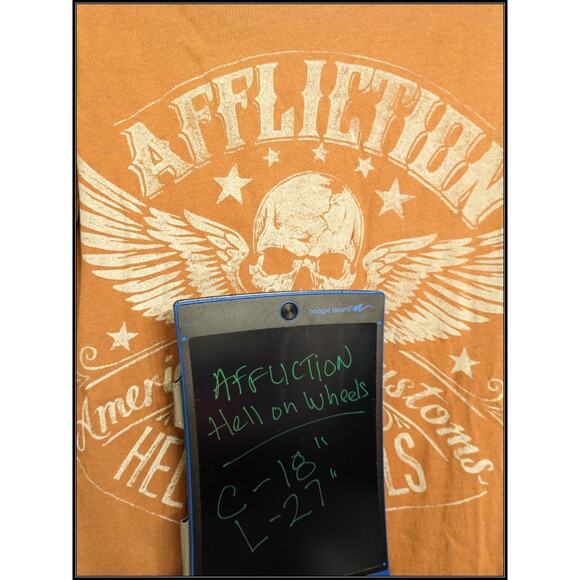 AFFLICTION
boogie board
AFFLICTION
Hell on Wheels
C - 18"
L - 27"
Ameri ustoms
HE LS